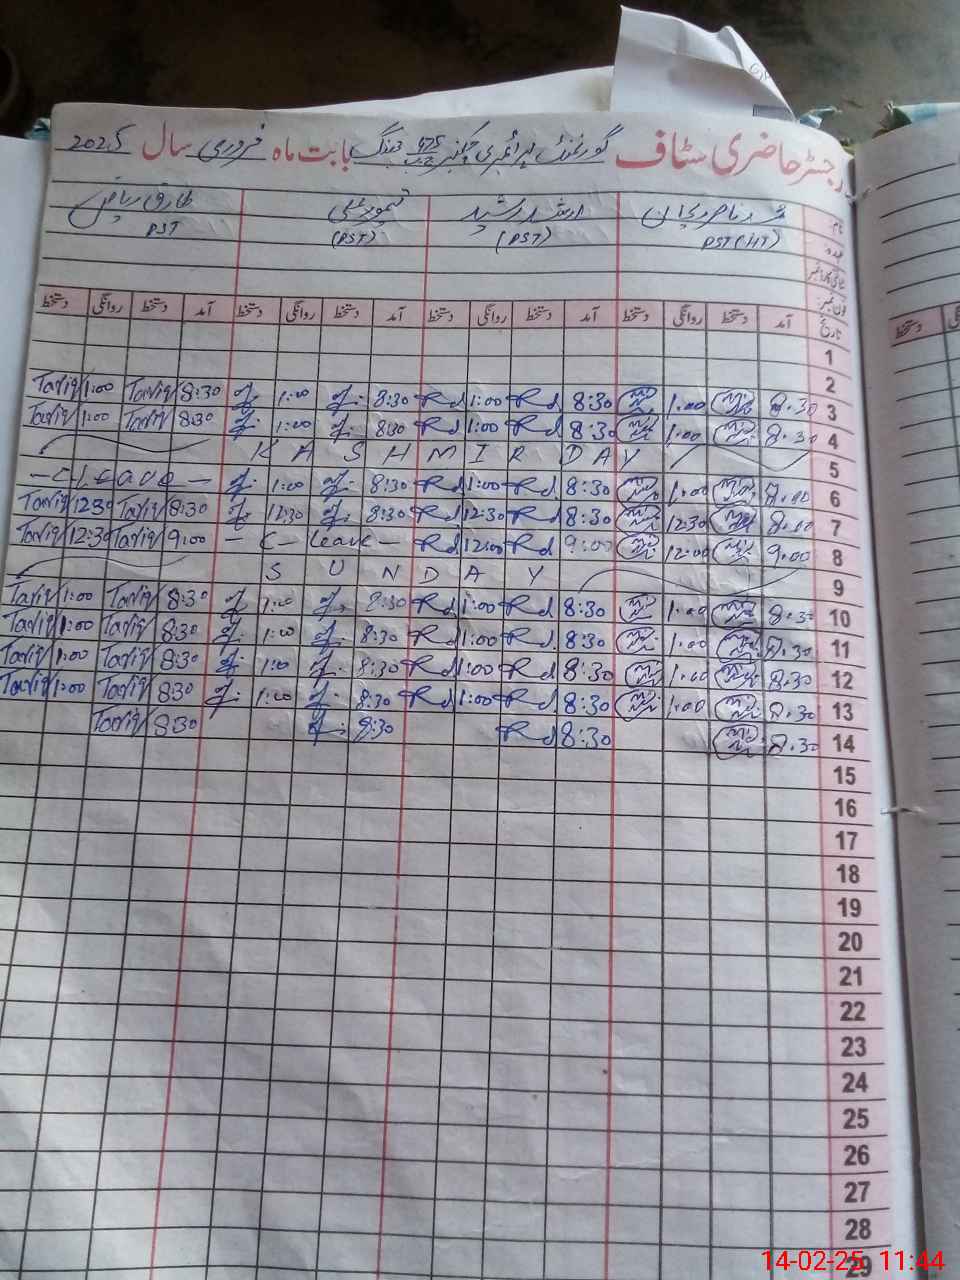 رجسٹر حاضری سٹاف گورنمنٹ پرائمری 475 جھنگ بابت ماہ فروری سال 2025
نام ارشد رشید طارق ریاض
عہدہ PST(HT) (PST) (PST) PST
تاریخ آمد دستخط روانگی دستخط آمد دستخط روانگی دستخط آمد دستخط روانگی دستخط آمد دستخط روانگی دستخط
1
2
Tariq 1:00 Tariq 8:30 1:00 8:30 Rd 1:00 Rd 8:30 1.00 8.30 3
Tariq 1:00 Tariq 8:30 1:00 8:30 Rd 1:00 Rd 8:30 1.00 8.30 4
KASHMIR DAY 5
- C Leave - 1:00 8:30 Rd 1:00 Rd 8:30 1.00 6
Tariq 12:30 Tariq 8:30 12:30 8:30 Rd 12:30 Rd 8:30 12:30 7
Tariq 12:30 Tariq 9:00 - C - Leave - Rd 12:00 Rd 9:00 12:00 9.00 8
SUNDAY 9
Tariq 1:00 Tariq 8:30 1:00 8:30 Rd 1:00 Rd 8:30 1.00 8.30 10
Tariq 1:00 Tariq 8:30 1:00 8:30 Rd 1:00 Rd 8:30 1.00 8.30 11
Tariq 1:00 Tariq 8:30 1:00 8:30 Rd 1:00 Rd 8:30 1.00 8.30 12
Tariq 1:00 Tariq 8:30 1:00 8:30 Rd 1:00 Rd 8:30 1.00 8.30 13
Tariq 8:30 8:30 Rd 8:30 8.30 14
15
16
17
18
19
20
21
22
23
24
25
26
27
28
29
14-02-25 11:44
دستخط